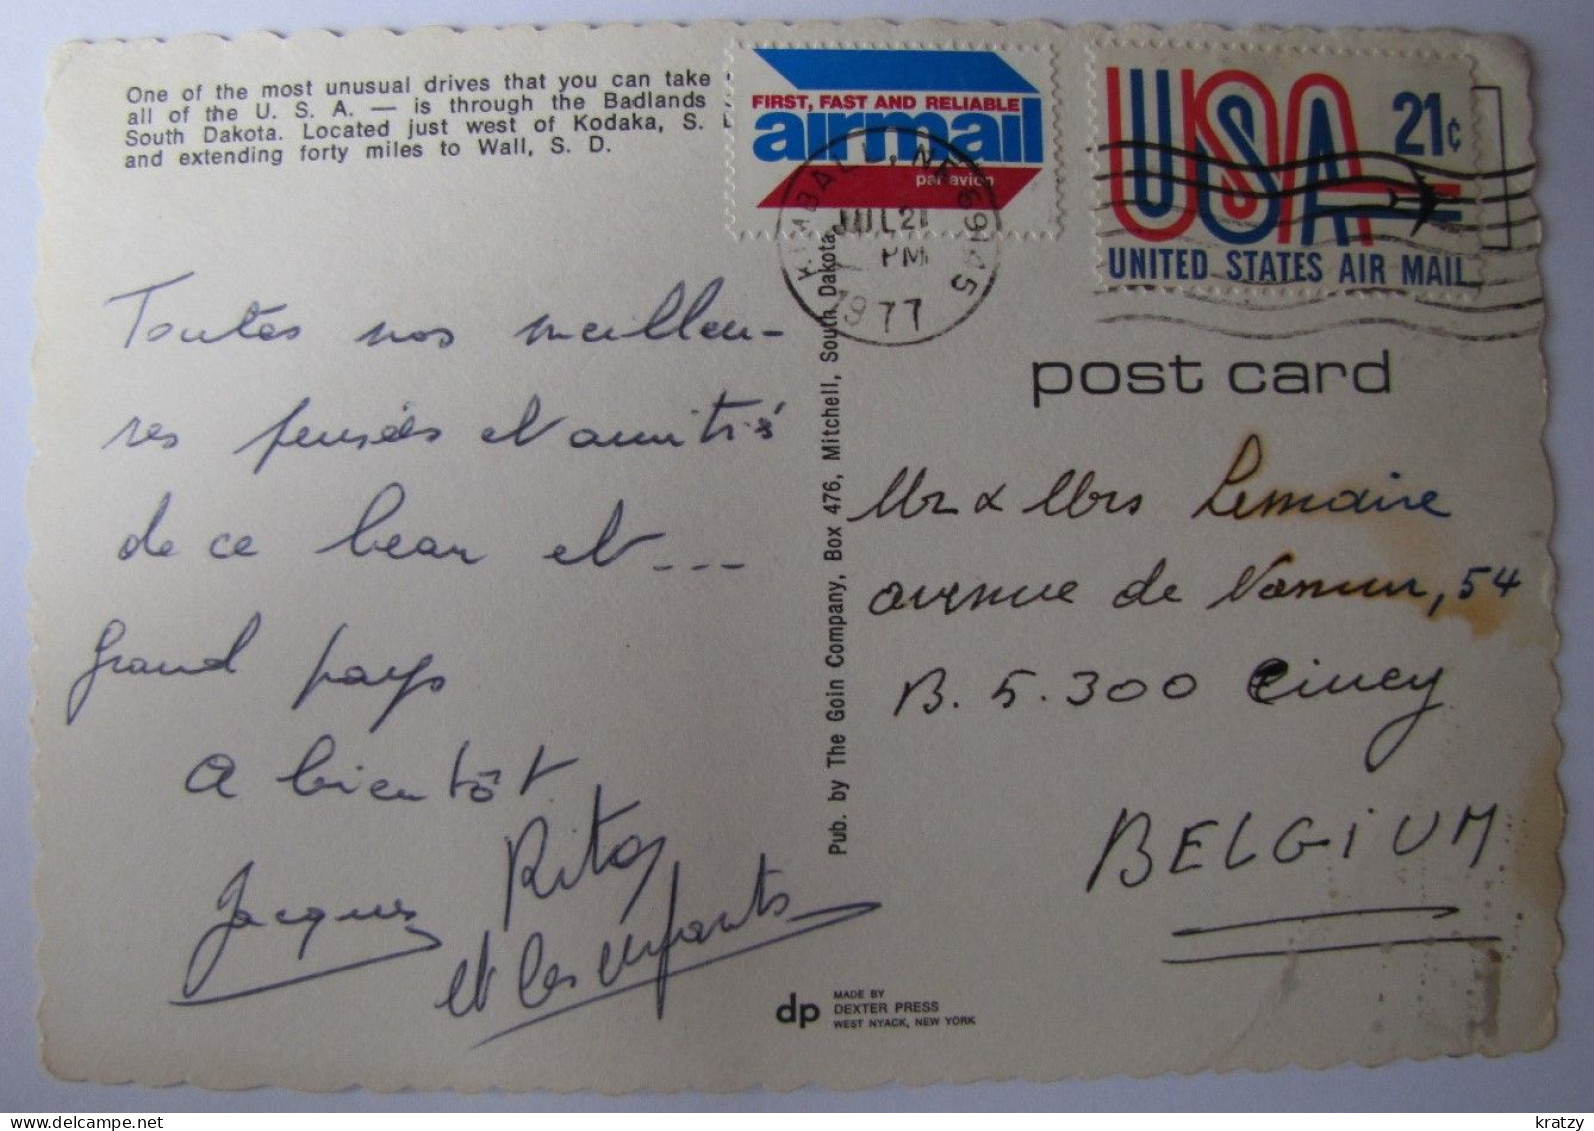 One of the most unusual drives that you can take
all of the U. S. A. — is through the Badlands
South Dakota. Located just west of Kodaka, S.
and extending forty miles to Wall, S. D.
FIRST, FAST AND RELIABLE
airmail
par avion
KIMBALL, NE 69145
JUL 21
PM
1977
USA
21¢
UNITED STATES AIR MAIL
post card
Toutes nos meilleu-
res pensées et amitiés
de ce beau et ---
grand pays
A bientôt
Jacques Rita
et les enfants
Pub. by The Goin Company, Box 476, Mitchell, South Dakota.
Mr & Mrs Lemaire
avenue de Namur, 54
B. 5.300 Ciney
BELGIUM
dp
MADE BY
DEXTER PRESS
WEST NYACK, NEW YORK
delcampe.net
kratzy